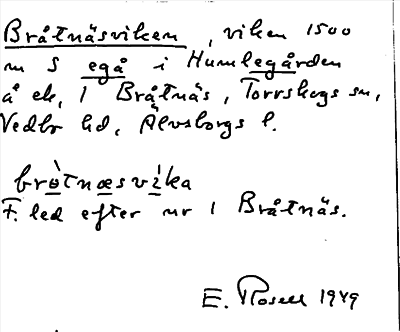 Bråtnäsviken, viken 1500
m S egå i Humlegården
å ek, 1 Bråtnäs, Torrskogs sn,
Vedbo hd, Älvsborgs l.
bròtnæsvìka
F. led efter nr 1 Bråtnäs.
E. Rosell 1949